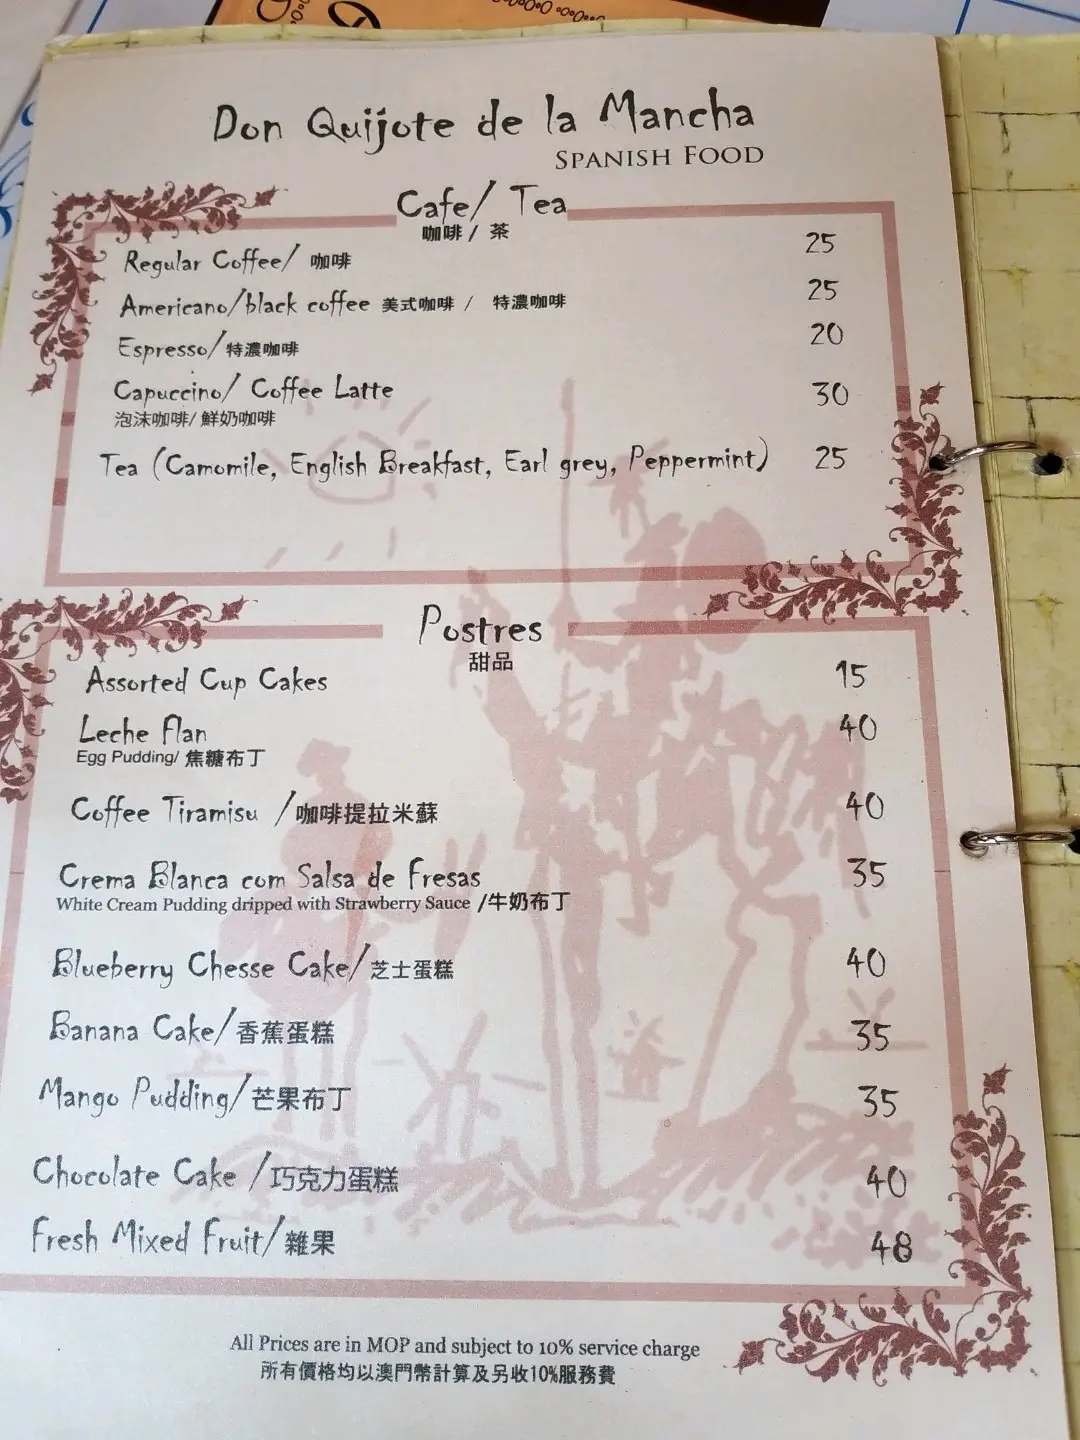 Don Quijote de la Mancha
SPANISH FOOD
Cafe/ Tea
咖啡 / 茶
Regular Coffee/ 咖啡 25
Americano/black coffee 美式咖啡 / 特濃咖啡 25
Espresso/特濃咖啡 20
Capuccino/ Coffee Latte 30
泡沫咖啡/ 鮮奶咖啡
Tea (Camomile, English Breakfast, Earl grey, Peppermint) 25
Postres
甜品
Assorted Cup Cakes 15
Leche Flan 40
Egg Pudding/ 焦糖布丁
Coffee Tiramisu /咖啡提拉米蘇 40
Crema Blanca com Salsa de Fresas 35
White Cream Pudding dripped with Strawberry Sauce /牛奶布丁
Blueberry Chesse Cake/芝士蛋糕 40
Banana Cake/香蕉蛋糕 35
Mango Pudding/芒果布丁 35
Chocolate Cake /巧克力蛋糕 40
Fresh Mixed Fruit/雜果 48
All Prices are in MOP and subject to 10% service charge
所有價格均以澳門幣計算及另收10%服務費